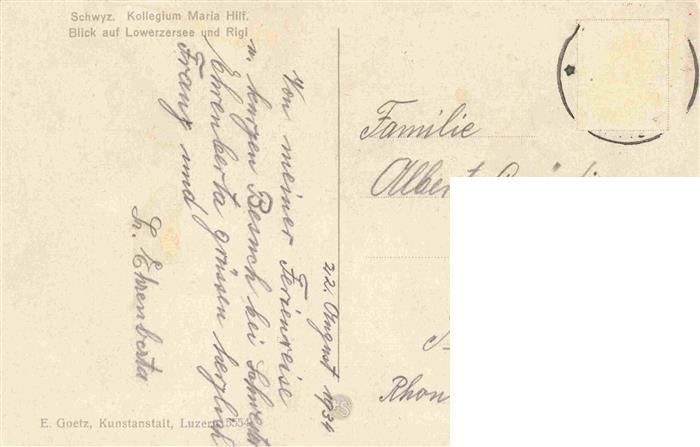 Schwyz. Kollegium Maria Hilf.
Blick auf Lowerzersee und Rigi
22. August 1934
Von meiner Ferienreise
u. kurzen Besuch bei Schwester
Ehrenberta grüssen herzlich
Franz und
Sr. Ehrenberta
Familie
Albert
Rhon
E. Goetz, Kunstanstalt, Luzern 15554